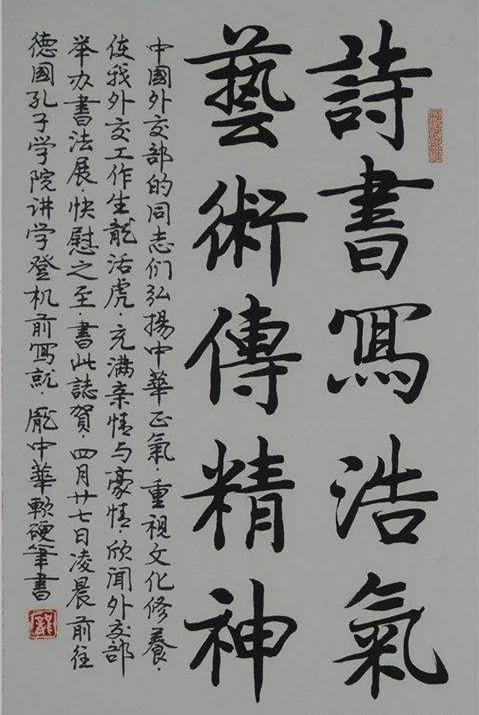 詩書寫浩氣
藝術傳精神
中國外交部的同志们弘揚中華正氣·重視文化修養·
使我外交工作生龍活虎·充满亲情与豪情·欣闻外交部
举办書法展快慰之至·書此誌賀·四月廿七日凌晨前往
德國孔子学院讲学登机前寫就·龐中華軟硬筆書